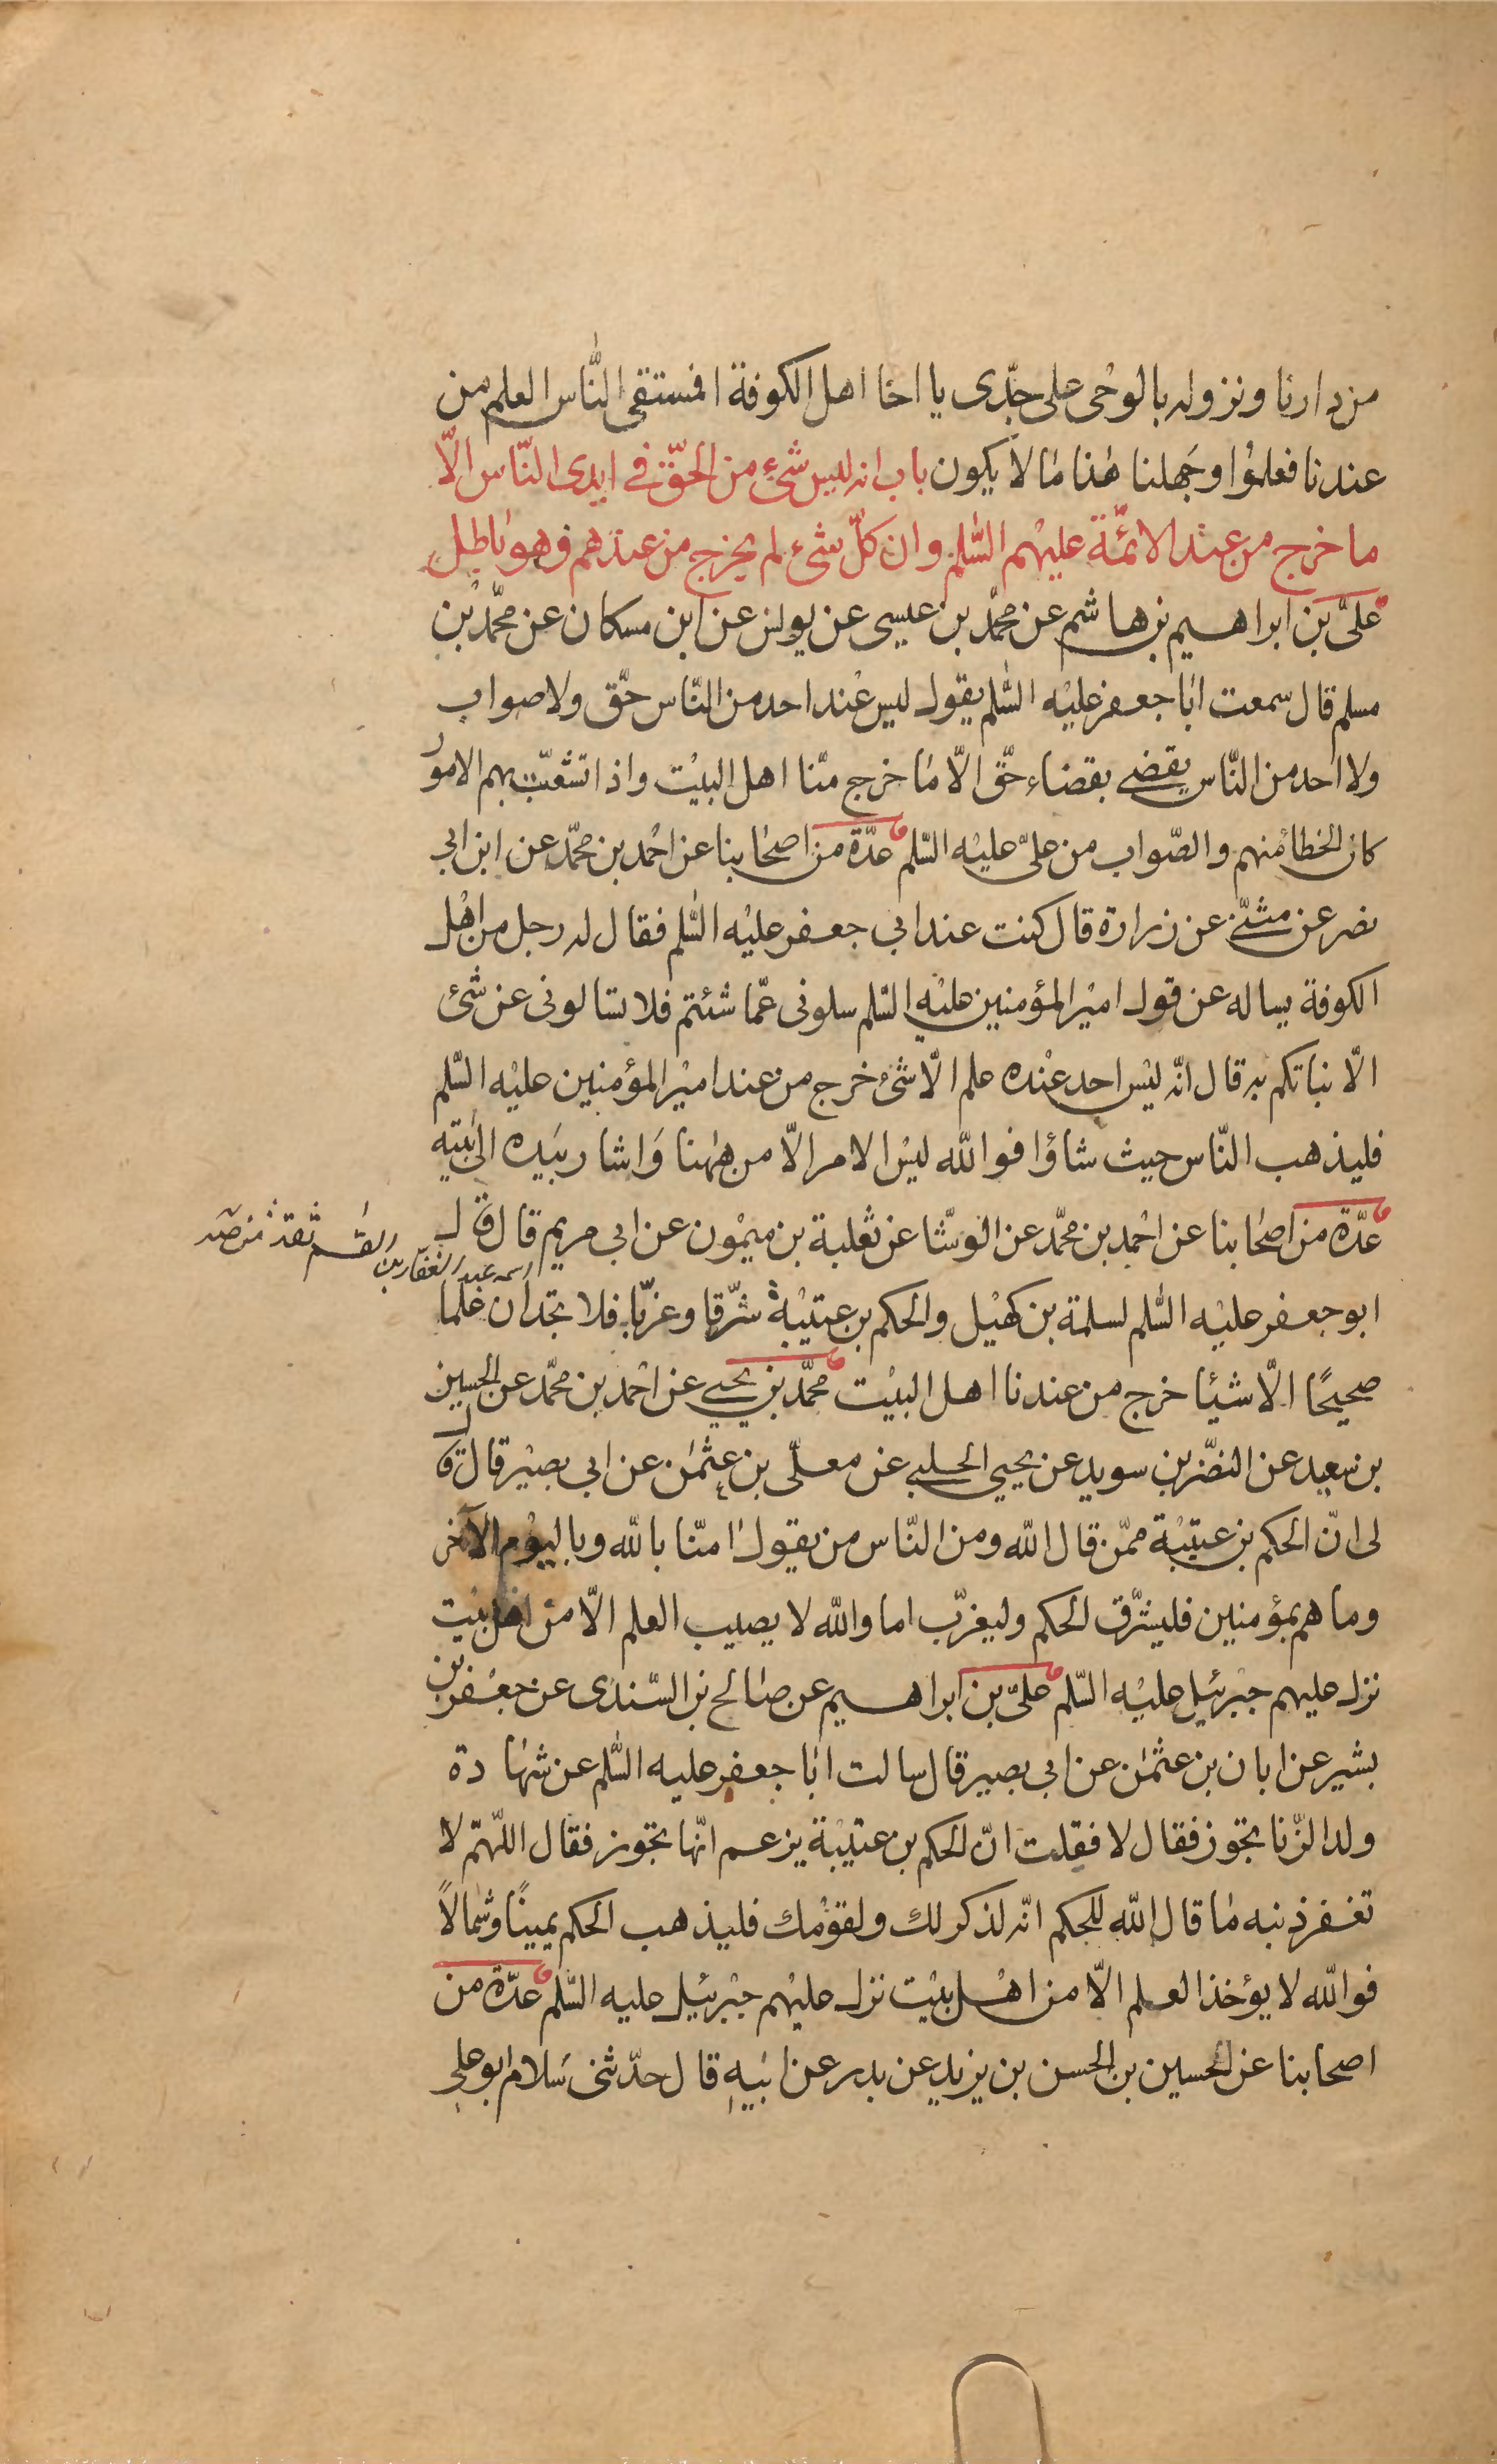 من دارنا ونزوله بالوحى على جدّى يا اخا اهل الكوفة افمستقى النّاس العلم من
عندنا فعلموا وجهلنا هذا ما لا يكون باب انه ليس شىء من الحقّ فى ايدى النّاس الّا
ما خرج من عند الائمّة عليهم السّلم وان كلّ شىء لم يخرج من عندهم فهو باطل
علىّ بن ابراهيم بن هاشم عن محمّد بن عيسى عن يونس عن ابن مسكان عن محمّد بن
مسلم قال سمعت ابا جعفر عليه السّلم يقول ليس عند احد من النّاس حقّ ولا صواب
ولا احد من النّاس يقضى بقضاء حقّ الّا ما خرج منّا اهل البيت واذا تشعّبت بهم الامور
كان الخطا منهم والصّواب من علىّ عليه السّلم عدّة من اصحابنا عن احمد بن محمّد عن ابن ابى
نصر عن مثنّى عن زرارة قال كنت عند ابى جعفر عليه السّلم فقال له رجل من اهل
الكوفة يساله عن قول امير المؤمنين عليه السّلم سلونى عمّا شئتم فلا تسالونى عن شىء
الّا نباتكم به قال انّه ليس احد عنده علم الّا شىء خرج من عند امير المؤمنين عليه السّلم
فليذهب النّاس حيث شاؤا فوالله ليس الامر الّا من ههنا واشار بيده الى بيته
عدّة من اصحابنا عن احمد بن محمّد عن الوشّا عن ثعلبة بن ميمون عن ابى مريم قال قال
اسمه عبد الغفار بن القسم ثقة
ابو جعفر عليه السّلم لسلمة بن كهيل والحكم بن عتيبة شرّقا وغرّبا فلا تجدان علما
صحيحًا الّا شيئا خرج من عندنا اهل البيت محمّد بن يحيى عن احمد بن محمّد عن الحسين
بن سعيد عن النضر بن سويد عن يحيى الحلبى عن معلّى بن عثمن عن ابى بصير قال قال
لى انّ الحكم بن عتيبة ممّن قال الله ومن النّاس من يقول امنّا بالله وباليوم الآخر
وما هم بمؤمنين فليشرّق الحكم وليغرّب اما والله لا يصيب العلم الّا من اهل بيت
نزل عليهم جبرئيل عليه السّلم علىّ بن ابراهيم عن صالح بن السّندى عن جعفر بن
بشير عن ابان بن عثمن عن ابى بصير قال سالت ابا جعفر عليه السّلم عن شهادة
ولد الزّنا تجوز فقال لا فقلت انّ الحكم بن عتيبة يزعم انّها تجوز فقال اللّهمّ لا
تغفر ذنبه ما قال الله للحكم انّه لذكر لك ولقومك فليذهب الحكم يمينًا وشمالًا
فوالله لا يؤخذ العلم الّا من اهل بيت نزل عليهم جبرئيل عليه السّلم عدّة من
اصحابنا عن الحسين بن الحسن بن يزيد عن بدر عن ابيه قال حدّثنى سلام ابو على